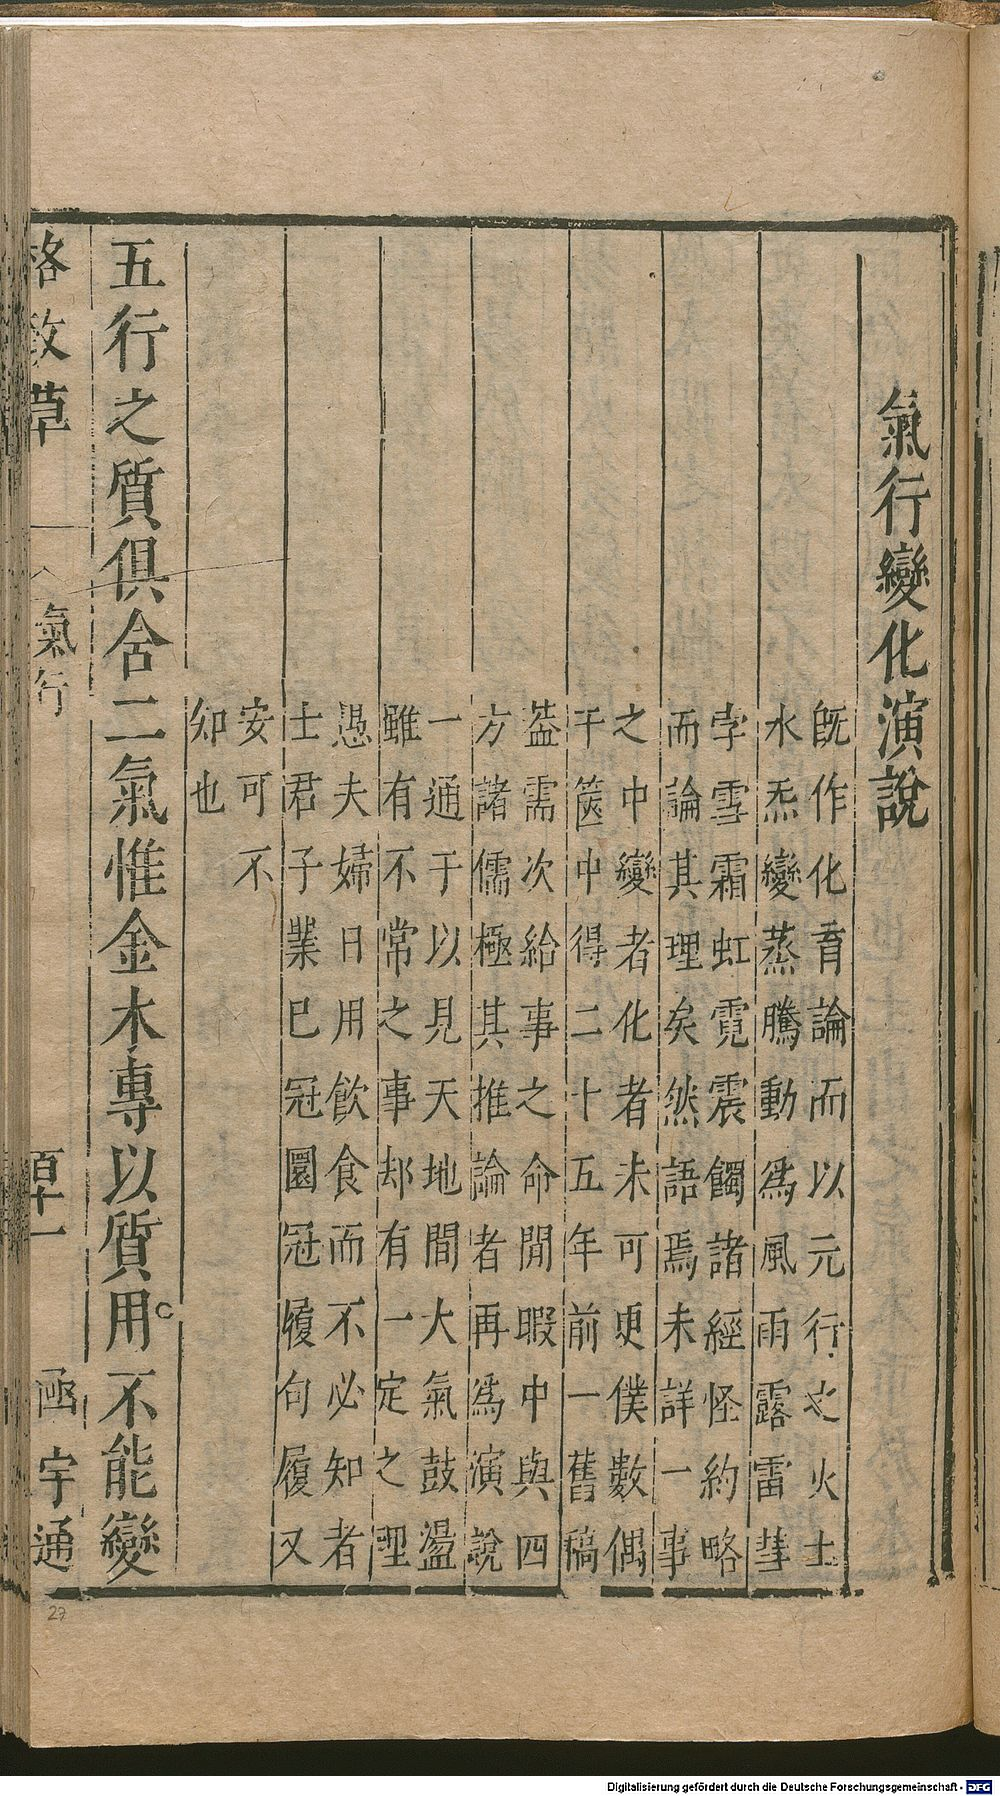 氣行變化演說
旣作化育論而以元行之火土
水炁變蒸騰動爲風雨露雷彗
孛雪霜虹霓震觸諸經怪約略
而論其理矣然語焉未詳一事
之中變者化者未可更僕數偶
于篋中得二十五年前一舊稿
葢需次給事之命閒暇中與四
方諸儒極其推論者再爲演說
一通于以見天地間大氣鼓盪
雖有不常之事却有一定之理
愚夫婦日用飲食而不必知者
士君子業已冠圜冠履句履又
安可不
知也
五行之質俱含二氣惟金木專以質用不能變
格致草
氣行
百卄一
函宇通
27
Digitalisierung gefördert durch die Deutsche Forschungsgemeinschaft - DFG